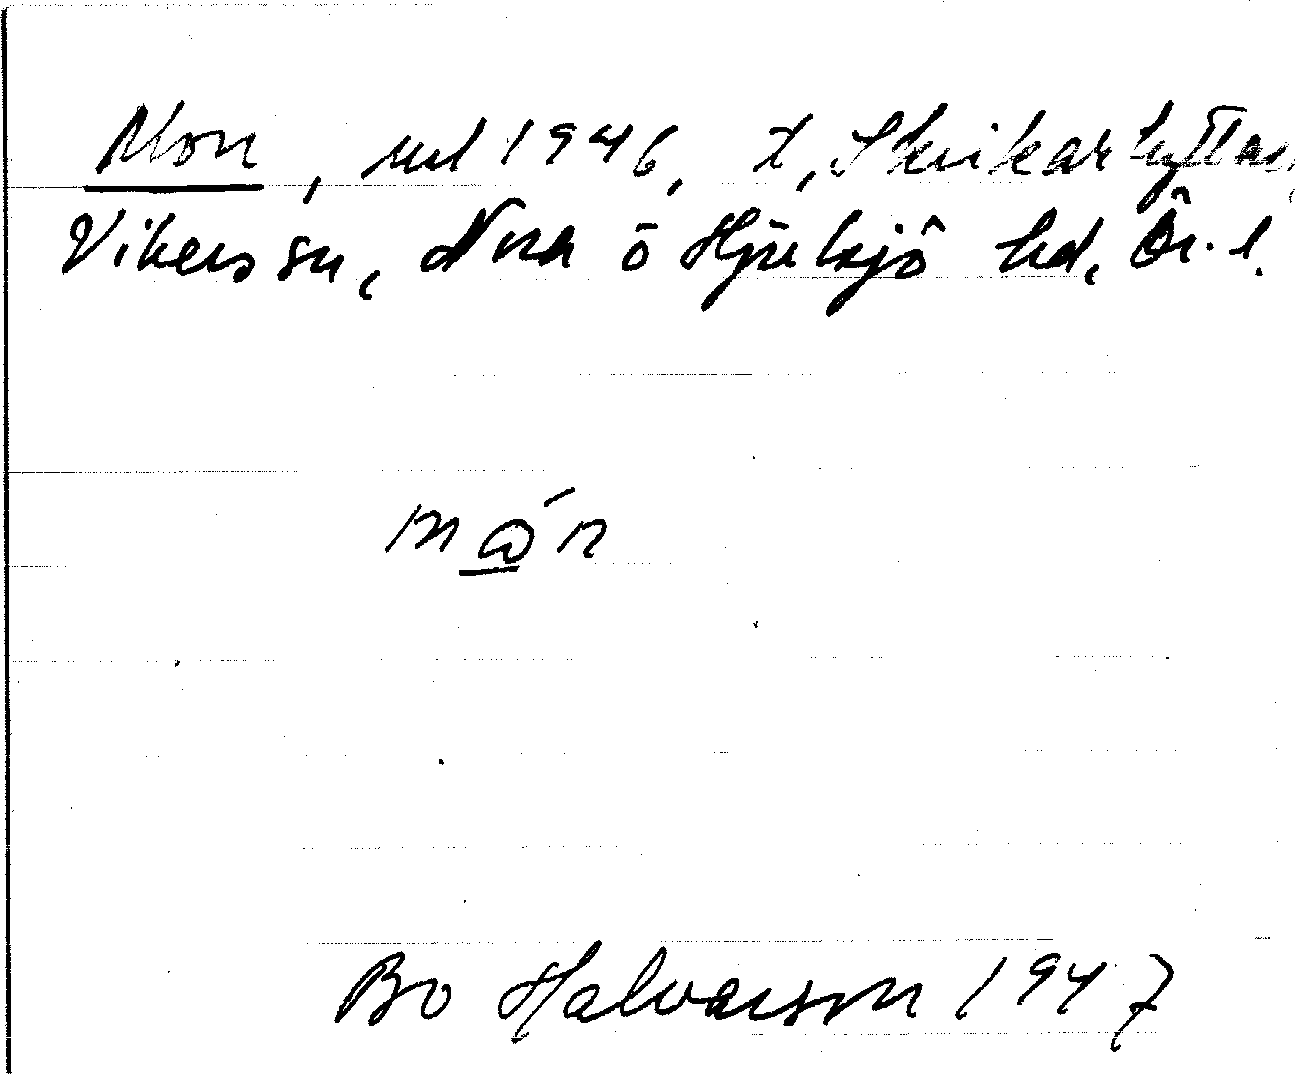 Mon, rul 1946, t, Skrikarhyttan,
Vikers sn, Nora o Hjulsjö hd, Ör. l.
mǫ́n
Bo Halvarson 1947